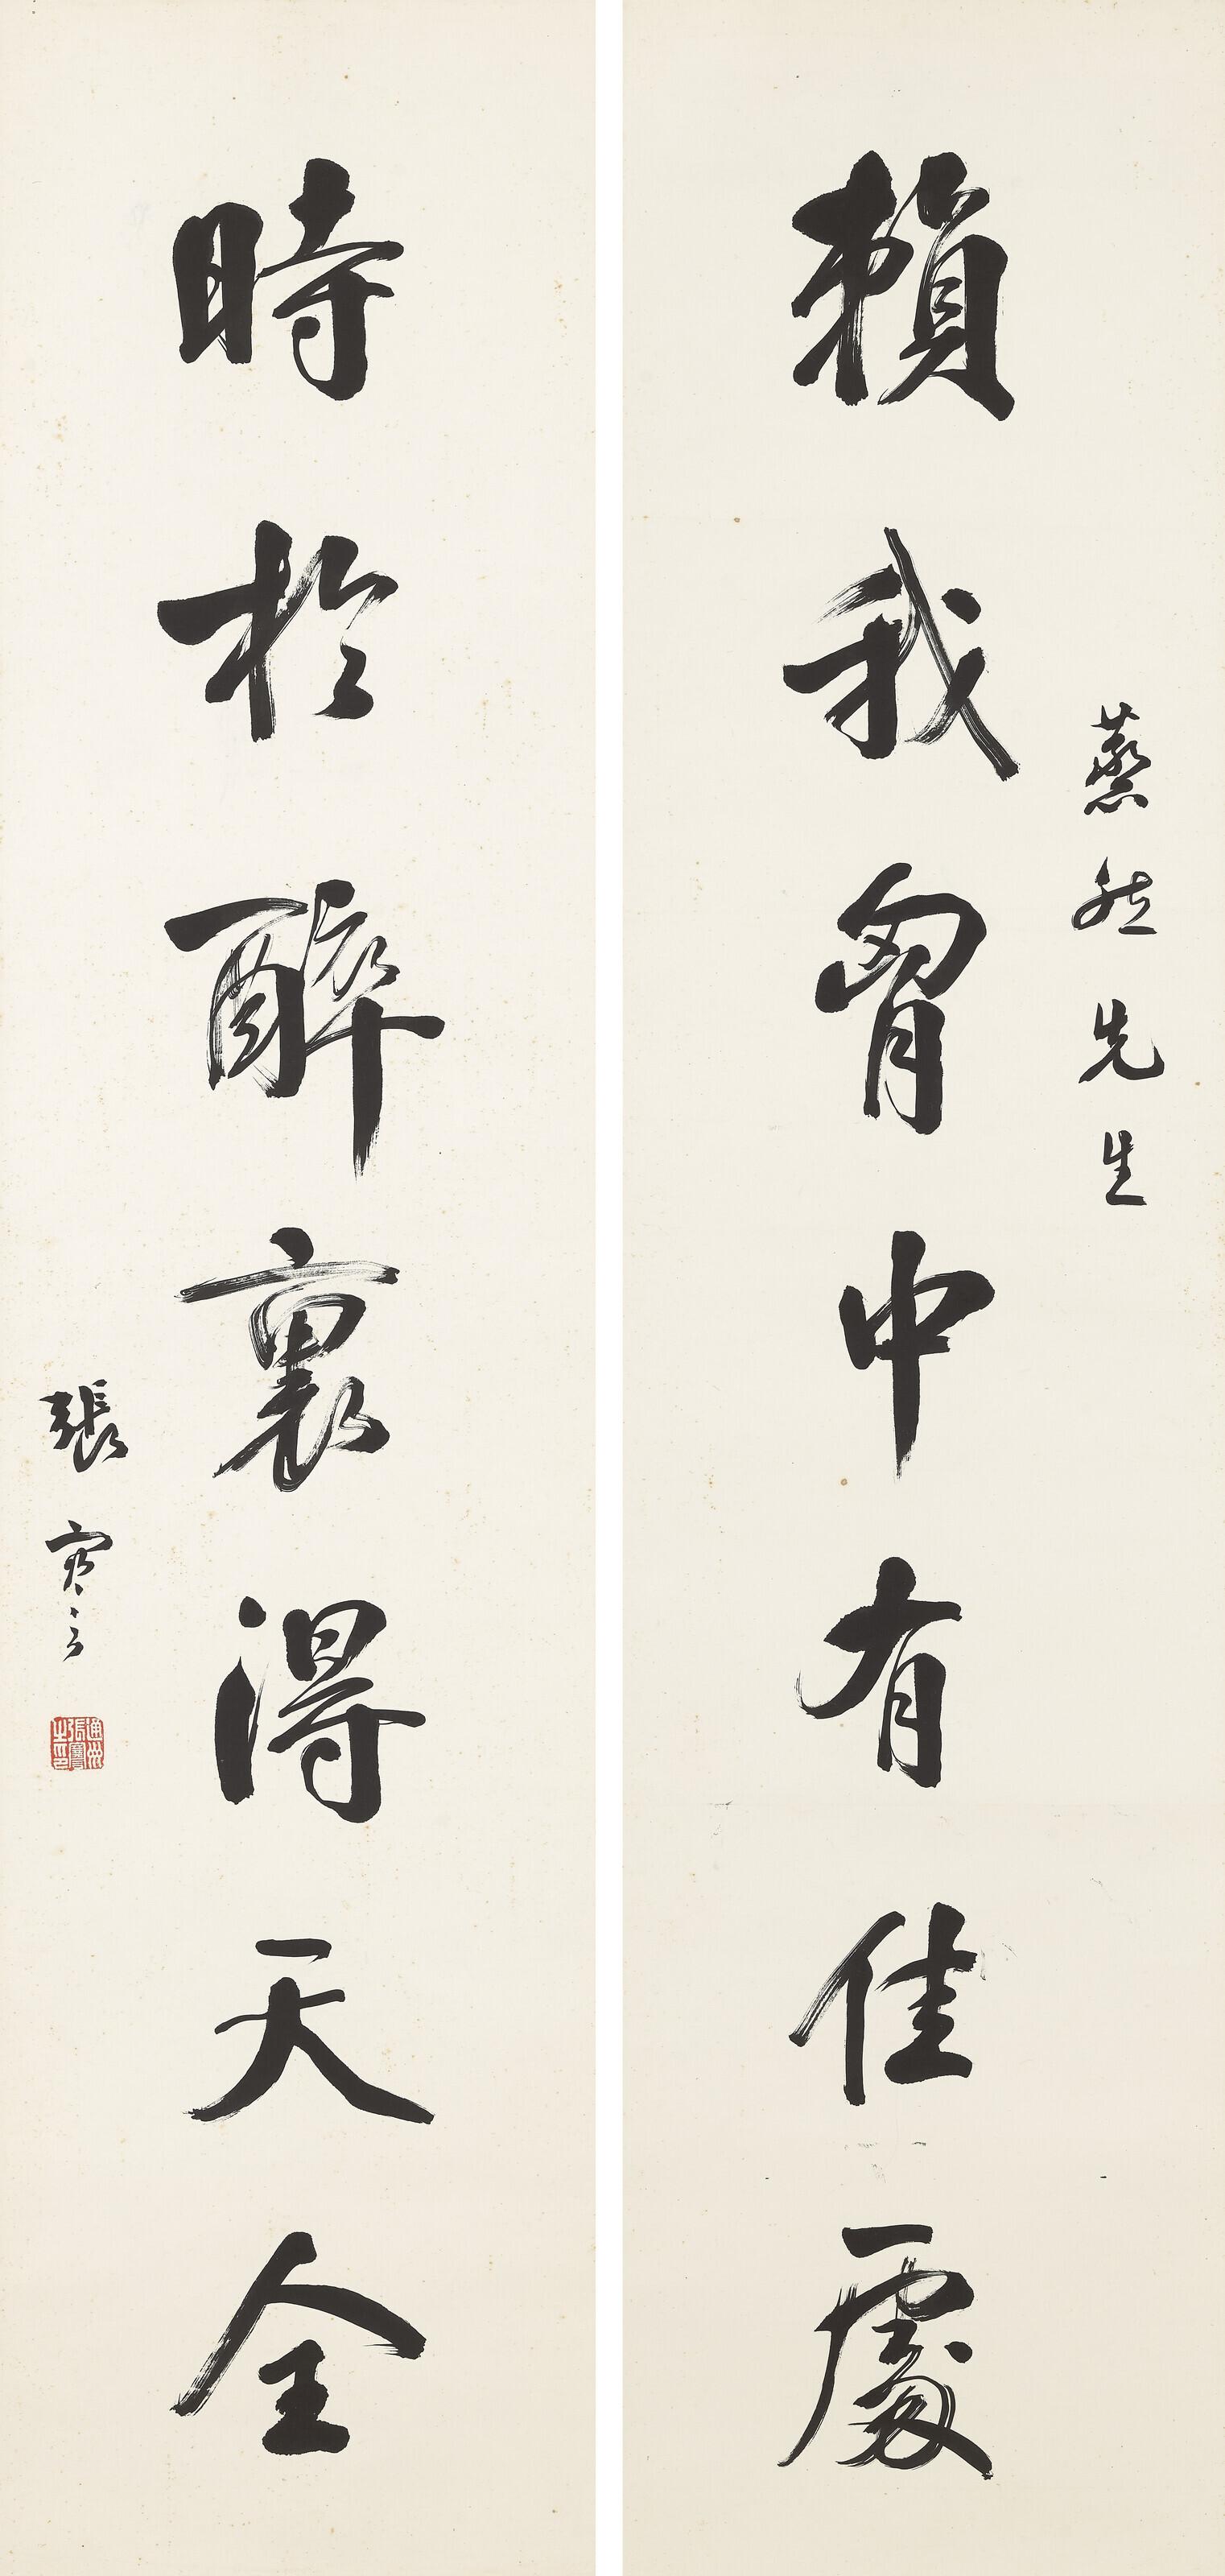 賴我胷中有佳處
先生
時於醉裏得天全
張謇
通州張謇之印